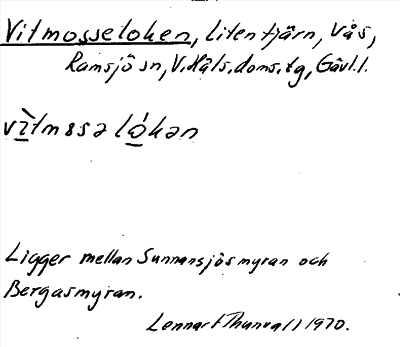 Vitmosseloken, liten tjärn, Vås,
Ramsjö sn, V. Häls. doms.tg, Gävl.l.
vìtmɞsə lókən
Ligger mellan Sunnansjösmyran och
Bergasmyran.
Lennart Thunvall 1970.